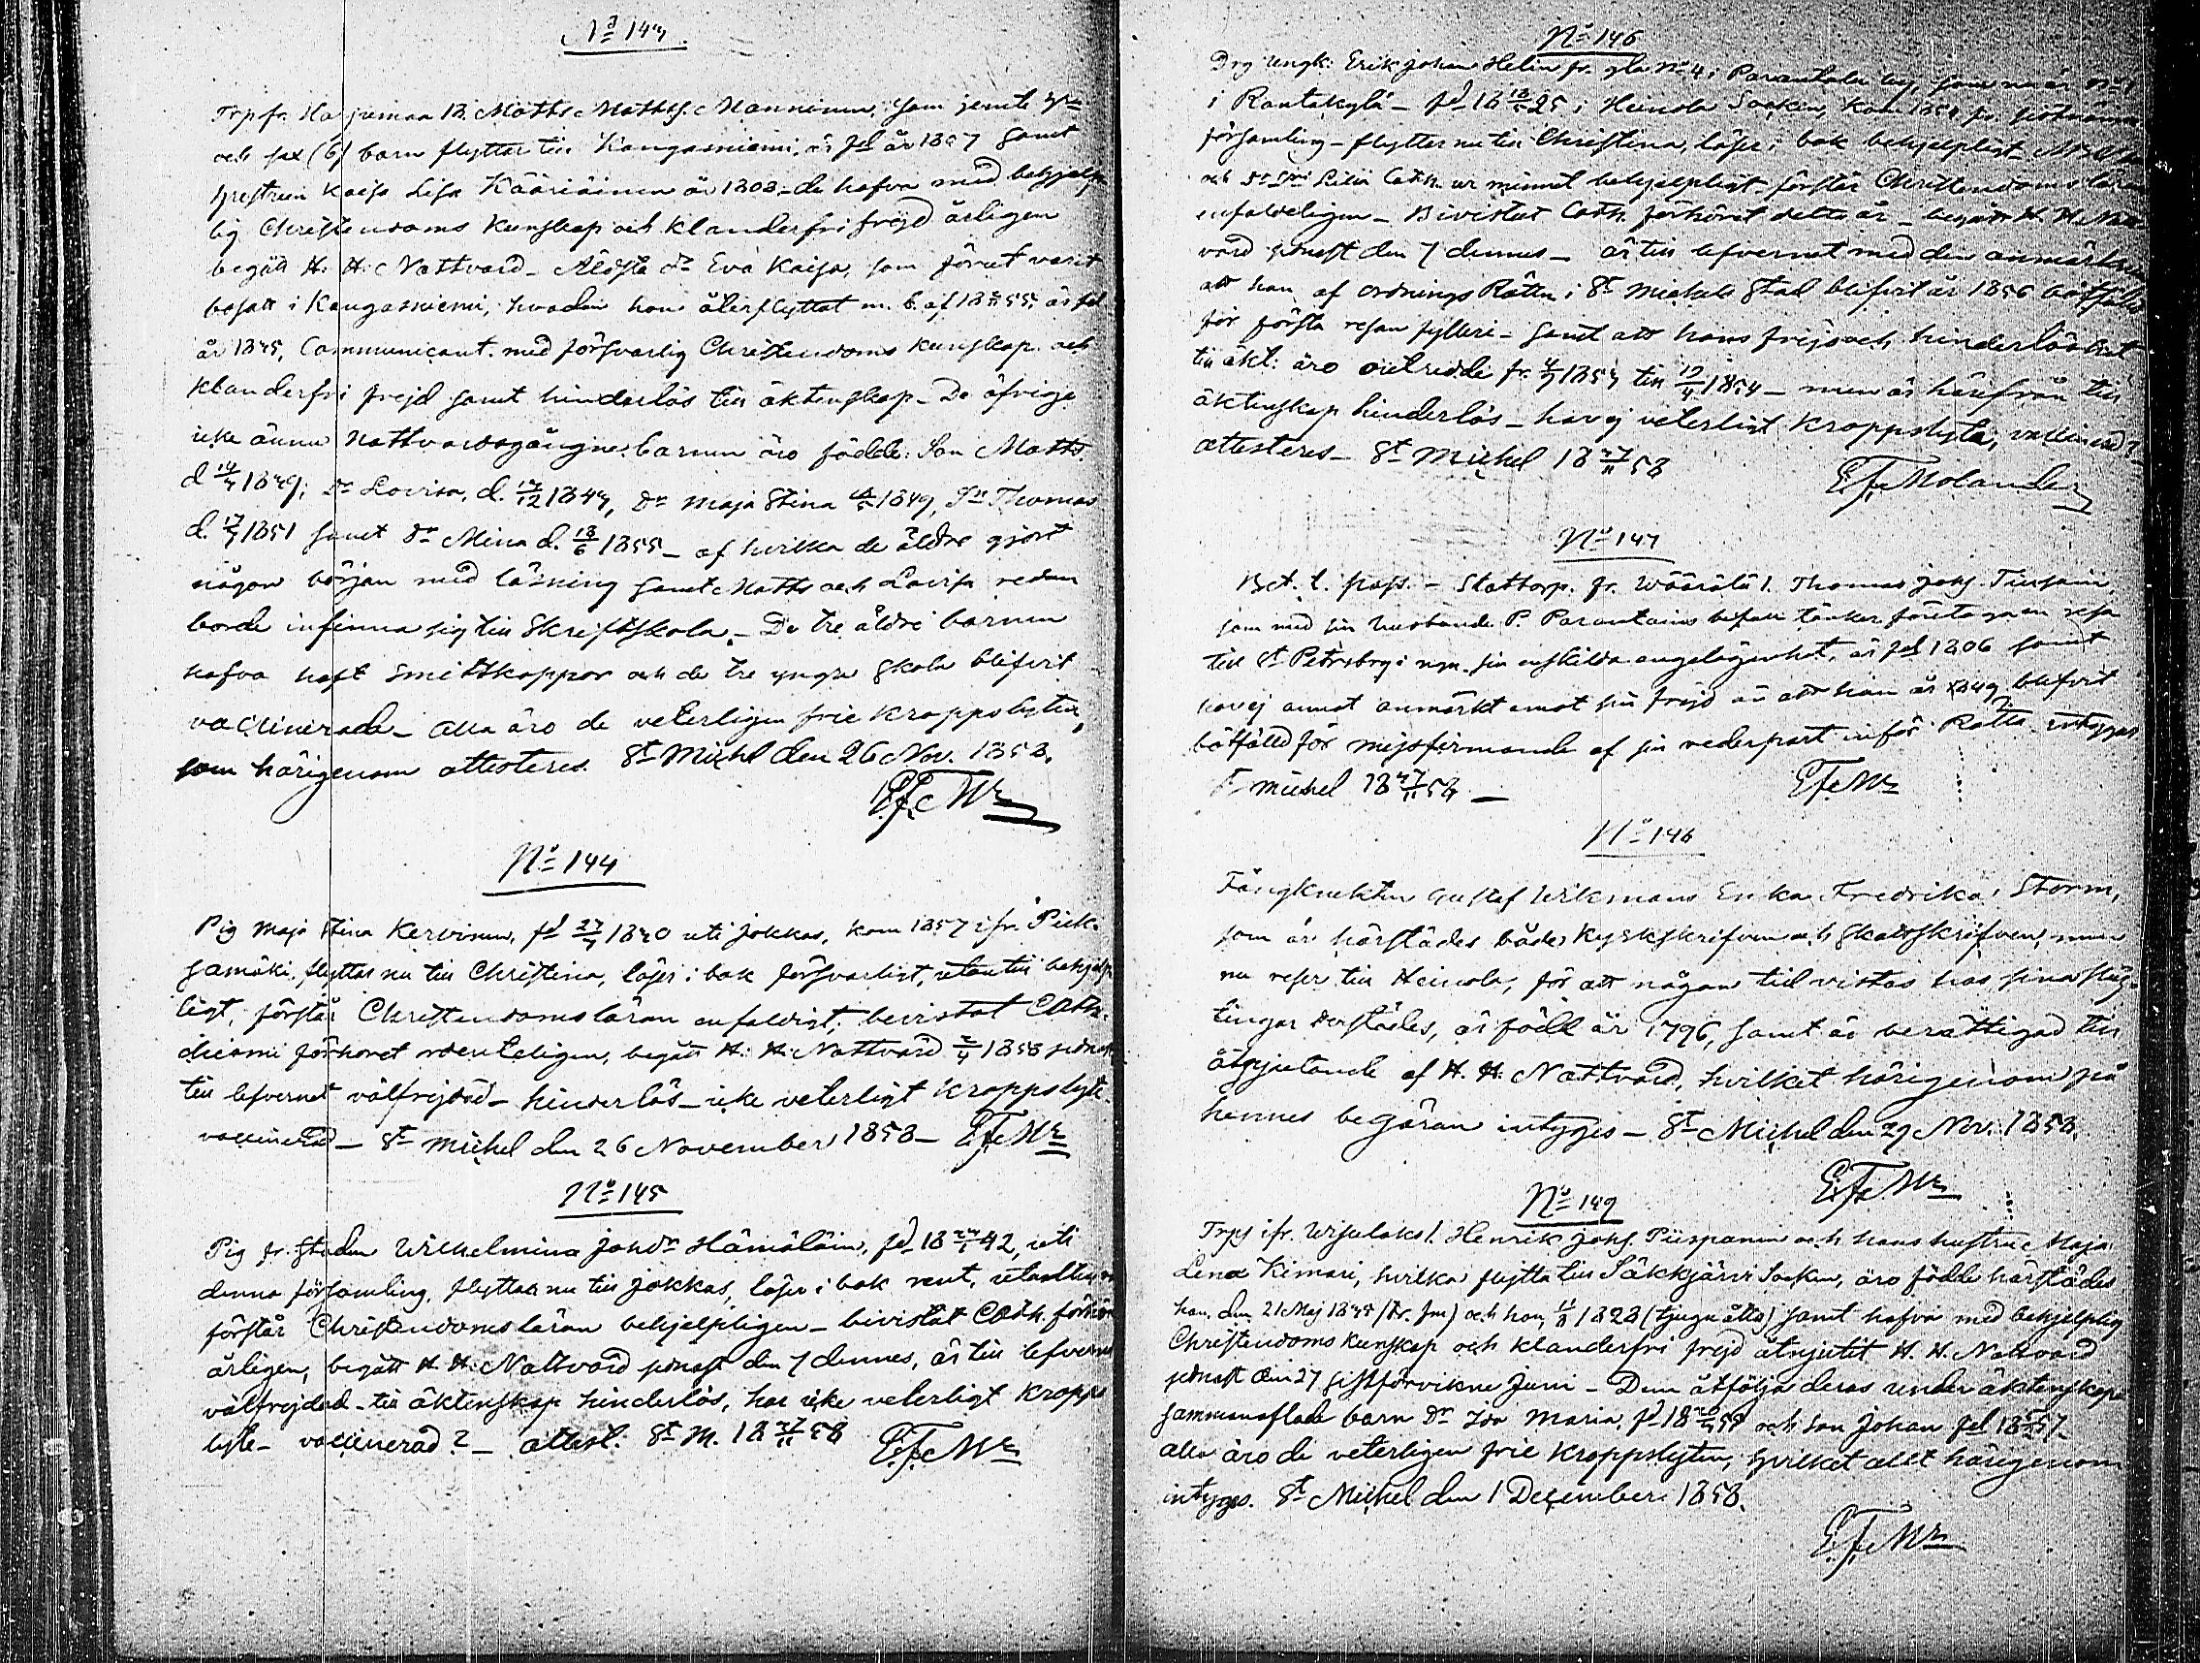 No 143
Trpfr. Harjumaa 13. Matts Mattss. Manninen, som jemte hu
och sex (6) barn flyttar till Kangasniemi, är fdd år 1807 samt
hustrun Kaisa Lisa Kääriäinen år 1808 - de hafva med behjelp
lig Christendoms kunskap och klanderfri frejd årligen
begått H. H. Nattvard - Äldsta dr Eva Kaisa, som förut varit
bosatt i Kangasniemi, hvadan hon återflyttat m. b. af 18 55, är fdd
år 1845, Communicant med försvarlig Christendoms kunskap och
klanderfri frejd samt hinderlös till äktenskap - De öfriga
icke ännu Nattvardsgångne barnen äro födde: Son Matts
d 1849; Dr Lovisa, d. 1844, Dr Maja Stina 1849, Sn Thomas
d. 17/7 1851 samt Dr Mina d. 18/6 1855 - af hvilka de äldre gjort
någon början med läsning samt Matts och Lovisa redan
borde infinna sig till Skriftskola. - De tre äldre barnen
hafva haft Smittkoppor och de tre yngre skola blifvit
vaccinerade - alla äro de veterligen frie kroppslyten,
som härigenom attesteres. St Michel den 26 Nov. 1858.
EFMr
No 144
Pig Maja Stina Kervinen, fd 27/7 1840 uti Jokkas, kom 1857 ifr. Piek-
sämäki, flyttar nu till Christina, läser i bok försvarligt, utantill behjelp
ligt, förstår Christendomsläran enfaldigt, bevistat Cate-
chismi förhöret ordenteligen, begått H. H. Nattvard 1858 sednast
till lefvernet välfrejdad - hinderlös - icke veterligt kroppslyte -
vaccinerad - St Michel den 26 November 1858 - EFMr
No 145
Pig fr. Staden Wilhelmina Johdr Hämäläin, fd 18 42, uti
denna församling, flyttar nu till Jokkas, läser i bok rent, utantill
förstår Christendomsläran behjelpligen - bevistat Cath. förhör
årligen, begått H. H. Nattvard sednast den 7 dennes, är till lefvernet
välfrejdad - till äktenskap hinderlös, har icke veterligt kropps
lyte - vaccinerad? - attest. St M. 18 27/11 58 EFMr
No 146
Drg Ungk: Erik Johan Helin fr. gla No 4 i Parantala by, som nu är
i Rantakylä - fd 18 25 i Heinola Socken, kom 185 fr.
församling - flyttar nu till Christina, läser i bok behjelpligt
och Dr Lilii Cath. ur minnet behjelpligt - förstår Christendomsläran
enfaldeligen - Bivistat Cath. förhöret detta år - begått H. H. Natt
vard sednast den 7 dennes - är till lefvernet med den anmärkning
att han af Ordnings Rätten i St Michels Stad blifvit år 1856 bötfälld
för första resan fylleri - samt att hans frejd och hinderlöshet
till äkt: äro outredde fr. 185 till 19/4 1854 - men är härifrån till
äktenskap hinderlös - har ej veterligt kroppslyte, vaccinerad?
attesteres - St Michel 18 27/11 58
EFMolander
No 147
Bet. t. pass. - Stattorp. fr. Wäärälä 1. Thomas Johs. Tiusain,
som med sin husbonde P. Parantains befall. tänker företaga en resa
till St Petersburg i egn. sin enskilda angelägenhet, är fdd 1806 samt
har ej annat anmärkt emot sin frejd än att han år 1849 blifvit
bötfälld för af sin vederpart inför Rätta. intygas
St Michel 18 27/11 58 -
EFMr
No 148
Fångknekten Gustaf Wikmans Enka Fredrika Storm,
som är härstädes både kyrkskrifven och skattskrifven, men
nu reser till Heinola, för att någon tid vistas hos sina släg-
tingar derstädes, är född år 1796, samt är berättigad till
åtnjutande af H. H. Nattvard, hvilket härigenom på
hennes begäran intyges - St Michel den 29 Nov. 1858.
EFMr
No 149
Trps ifr. Wisulaks 1. Henrik Johs. Piispanen och hans hustru Maja
Lena Kimari, hvilka flytta till Säkkjärvi Socken, äro födde härstädes
han den 21 Maj 1834 och hon 11/8 1828 (tjuguåtta) samt hafva med behjelplig
Christendoms kunskap och klanderfri frejd åtnjutit H. H. Nattvard
sednast den 27 sistförvikne Juni - Dem åtfölja deras under äktenskap
sammanaflade barn Dr Ida Maria, fd 18 54 och son Johan fdd 18 57 -
alla äro de veterligen frie kroppslyten, hvilket allt härigenom
intyges. St Michel den 1 December 1858.
EFMr